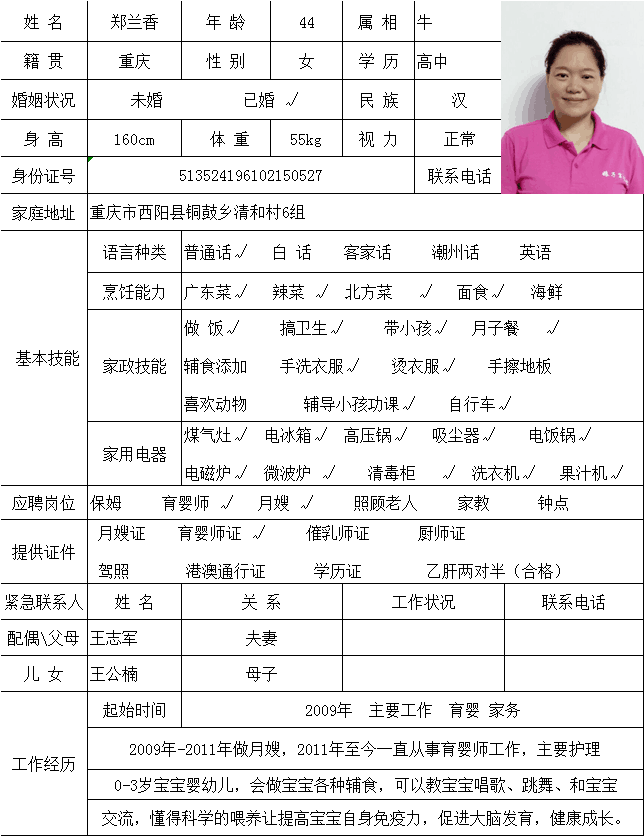 姓 名 郑兰香 年 龄 44 属 相 牛
籍 贯 重庆 性 别 女 学 历 高中
婚姻状况 未婚 已婚 √ 民 族 汉
身 高 160cm 体 重 55kg 视 力 正常
身份证号 513524196102150527 联系电话
家庭地址 重庆市西阳县铜鼓乡清和村6组
基本技能
语言种类 普通话√ 白 话 客家话 潮州话 英语
烹饪能力 广东菜√ 辣菜 √ 北方菜 √ 面食√ 海鲜
家政技能
做 饭√ 搞卫生√ 带小孩√ 月子餐 √
辅食添加 手洗衣服√ 烫衣服√ 手擦地板
喜欢动物 辅导小孩功课√ 自行车√
家用电器
煤气灶√ 电冰箱√ 高压锅√ 吸尘器√ 电饭锅√
电磁炉√ 微波炉 √ 清毒柜 √ 洗衣机√ 果汁机√
应聘岗位 保姆 育婴师 √ 月嫂 √ 照顾老人 家教 钟点
提供证件
月嫂证 育婴师证 √ 催乳师证 厨师证
驾照 港澳通行证 学历证 乙肝两对半（合格）
紧急联系人 姓 名 关 系 工作状况 联系电话
配偶\父母 王志军 夫妻
儿 女 王公楠 母子
工作经历
起始时间 2009年 主要工作 育婴 家务
2009年-2011年做月嫂，2011年至今一直从事育婴师工作，主要护理
0-3岁宝宝婴幼儿，会做宝宝各种辅食，可以教宝宝唱歌、跳舞、和宝宝
交流，懂得科学的喂养让提高宝宝自身免疫力，促进大脑发育，健康成长。